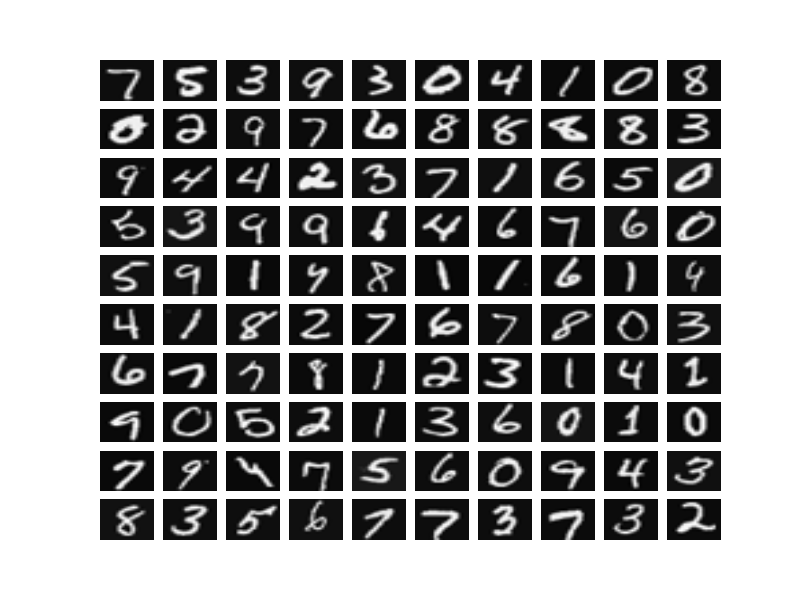 7 5 3 9 3 0 4 1 0 8
0 2 9 7 6 8 8 8 8 3
9 4 4 2 3 7 1 6 5 0
5 3 9 9 6 4 6 7 6 0
5 9 1 4 8 1 1 6 1 4
4 1 8 2 7 6 7 8 0 3
6 7 7 8 1 2 3 1 4 1
9 0 5 2 1 3 6 0 1 0
7 9 4 7 5 6 0 9 4 3
8 3 5 6 7 7 3 7 3 2